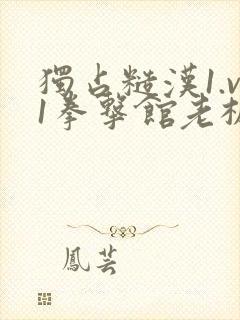 獨占糙漢1.v
1拳擊館老板
鳳芸